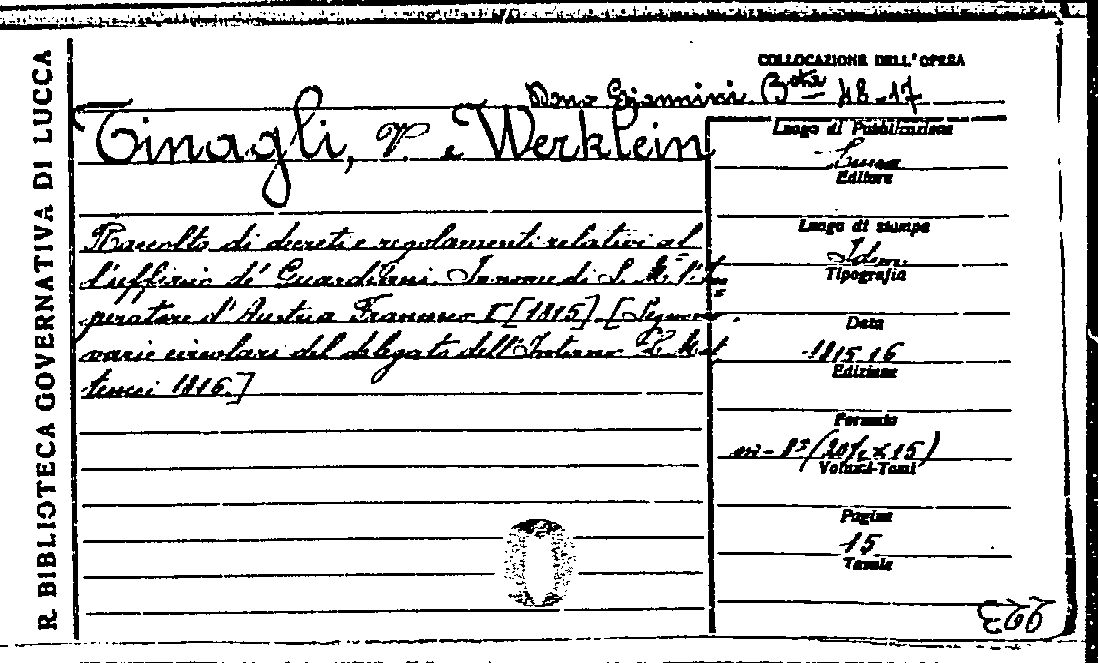 R. BIBLIOTECA GOVERNATIVA DI LUCCA
COLLOCAZIONE DELL'OPERA
Dono Giannini. B.ta 48-17
Tinagli, V. e Werklein
Raccolta di decreti e regolamenti relativi al
l'ufficio di Guardiani. In nome di S. M. l'Im=
peratore d'Austria Francesco I [1815]. [Seguono
varie circolari del delegato dell'Interno P. Mat
teucci 1816.]
Luogo di Pubblicazione
Lucca
Editore
Luogo di stampa
Idem
Tipografia
Data
1815 16
Edizione
Formato
in-8° (20½ x 15)
Volumi-Tomi
Pagine
15
Tavole